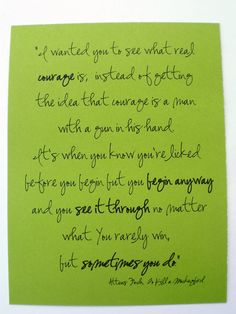 "I wanted you to see what real
courage is, instead of getting
the idea that courage is a man
with a gun in his hand.
It's when you know you're licked
before you begin but you begin anyway
and you see it through no matter
what. You rarely win,
but sometimes you do"
Atticus Finch, To Kill a Mockingbird